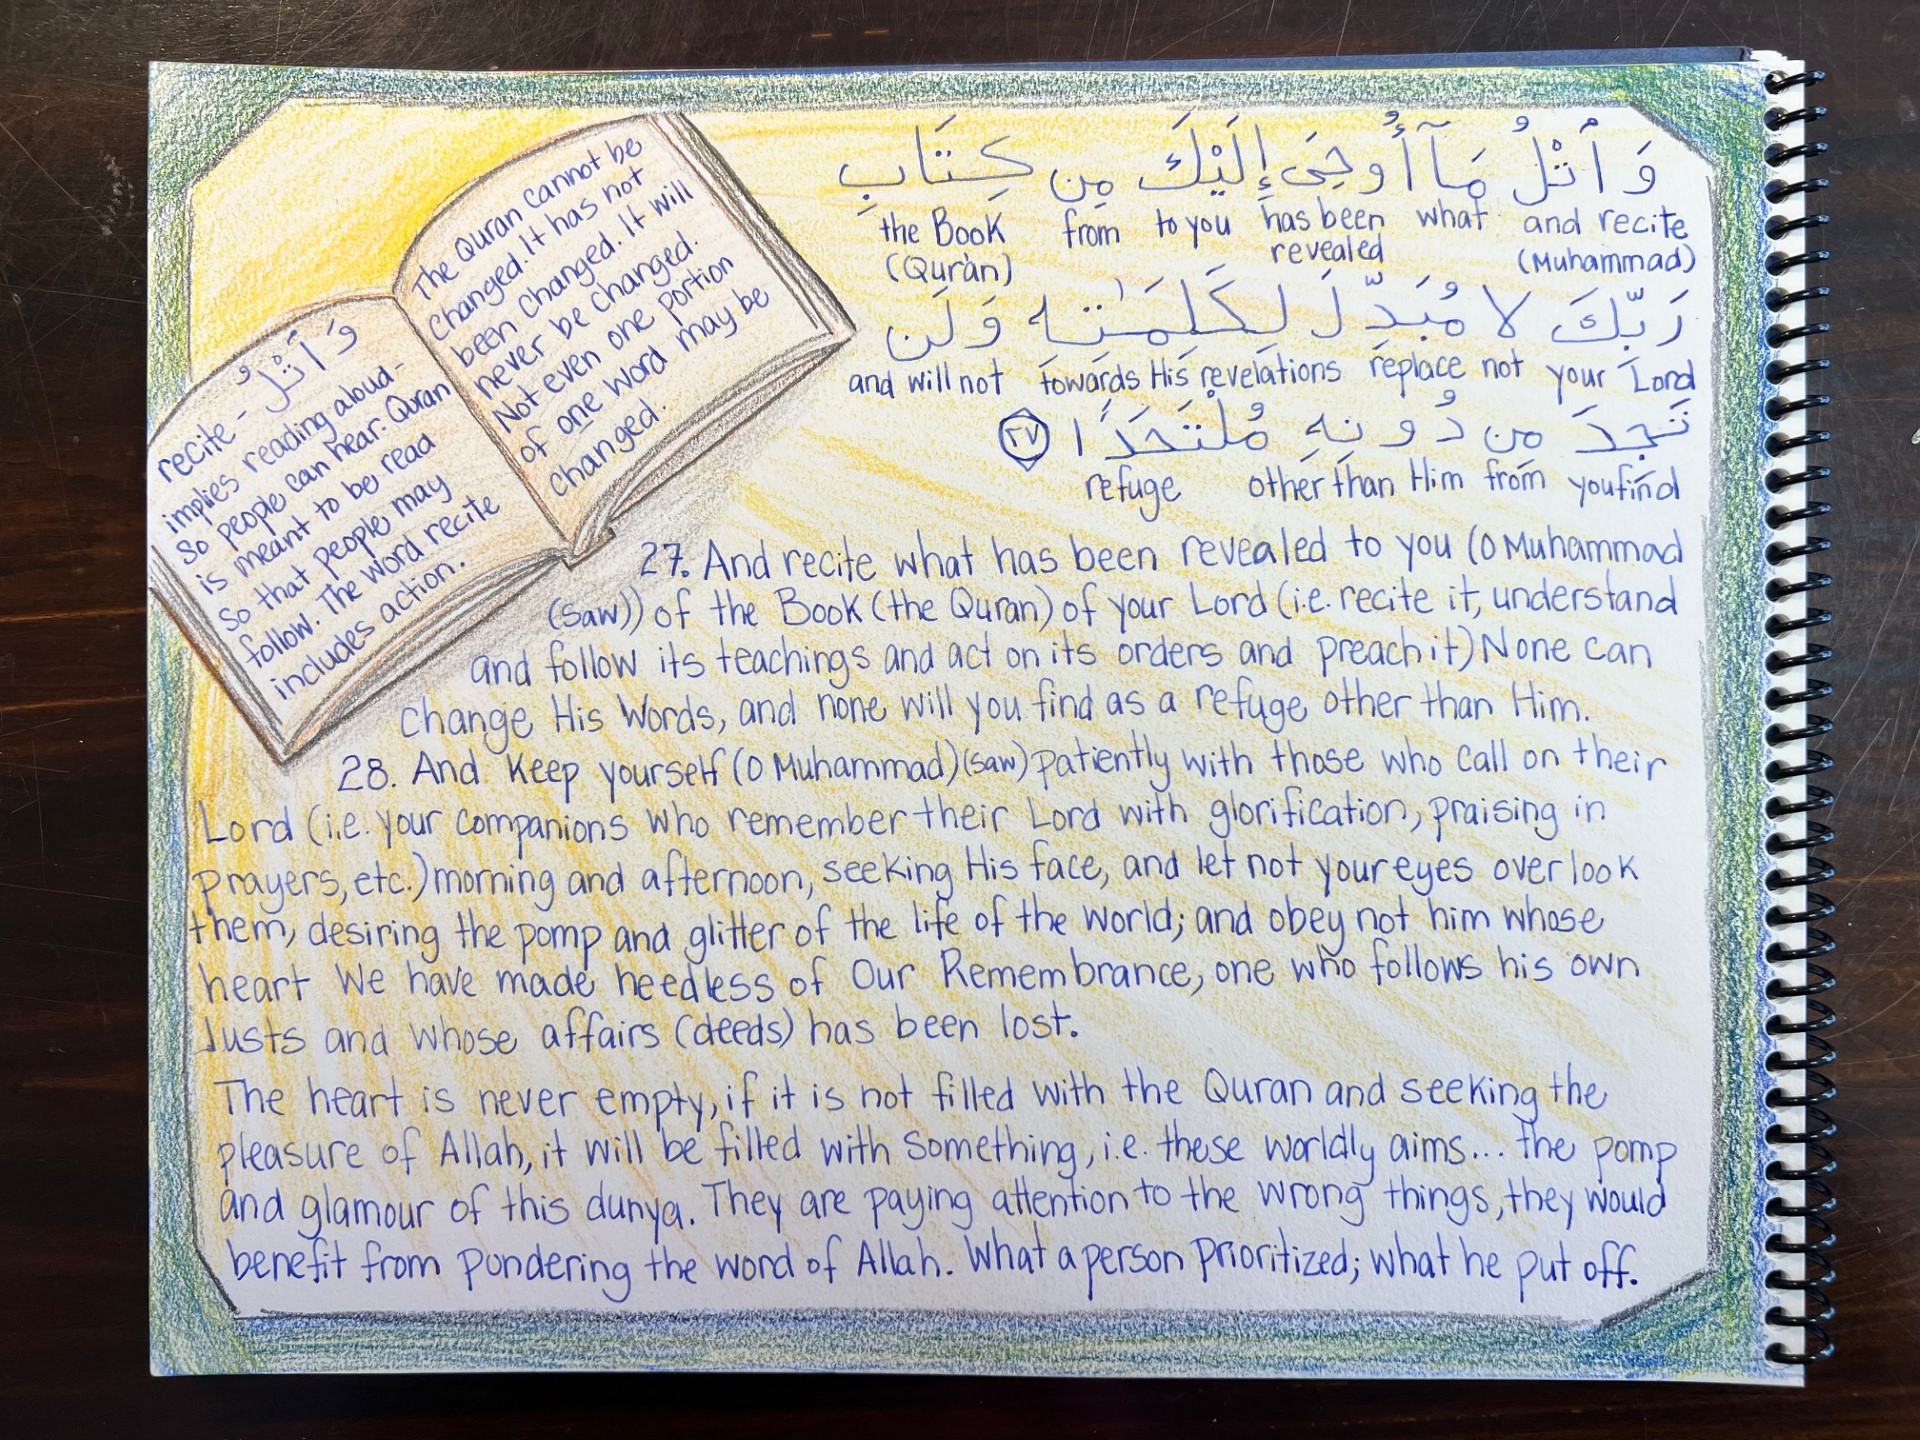 وَ ٱتْلُ مَآ أُوحِىَ إِلَيْكَ مِن كِتَابِ
and recite what has been to you from the Book
(Muhammad) revealed (Quràn)
رَبِّكَ لَا مُبَدِّلَ لِكَلِمَٰتِه وَلَن
your Lord not replace towards His revelations and will not
تَجِدَ مِن دُونِهِ مُلْتَحَدًا ٢٧
you find from other than Him refuge
The Quran cannot be
changed. It has not
been changed. It will
never be changed.
Not even one portion
of one word may be
changed.
وَ ٱتْلُ
recite -
implies reading aloud -
so people can hear. Quran
is meant to be read
so that people may
follow. The word recite
includes action.
27. And recite what has been revealed to you (O Muhammad
(saw)) of the Book (the Quran) of your Lord (i.e. recite it, understand
and follow its teachings and act on its orders and preach it) None can
change His Words, and none will you find as a refuge other than Him.
28. And keep yourself (O Muhammad) (saw) patiently with those who call on their
Lord (i.e. your companions who remember their Lord with glorification, praising in
prayers, etc.) morning and afternoon, seeking His face, and let not your eyes overlook
them, desiring the pomp and glitter of the life of the world; and obey not him whose
heart We have made heedless of Our Remembrance, one who follows his own
lusts and whose affairs (deeds) has been lost.
The heart is never empty, if it is not filled with the Quran and seeking the
pleasure of Allah, it will be filled with something, i.e. these worldly aims... the pomp
and glamour of this dunya. They are paying attention to the wrong things, they would
benefit from pondering the word of Allah. What a person prioritized; what he put off.